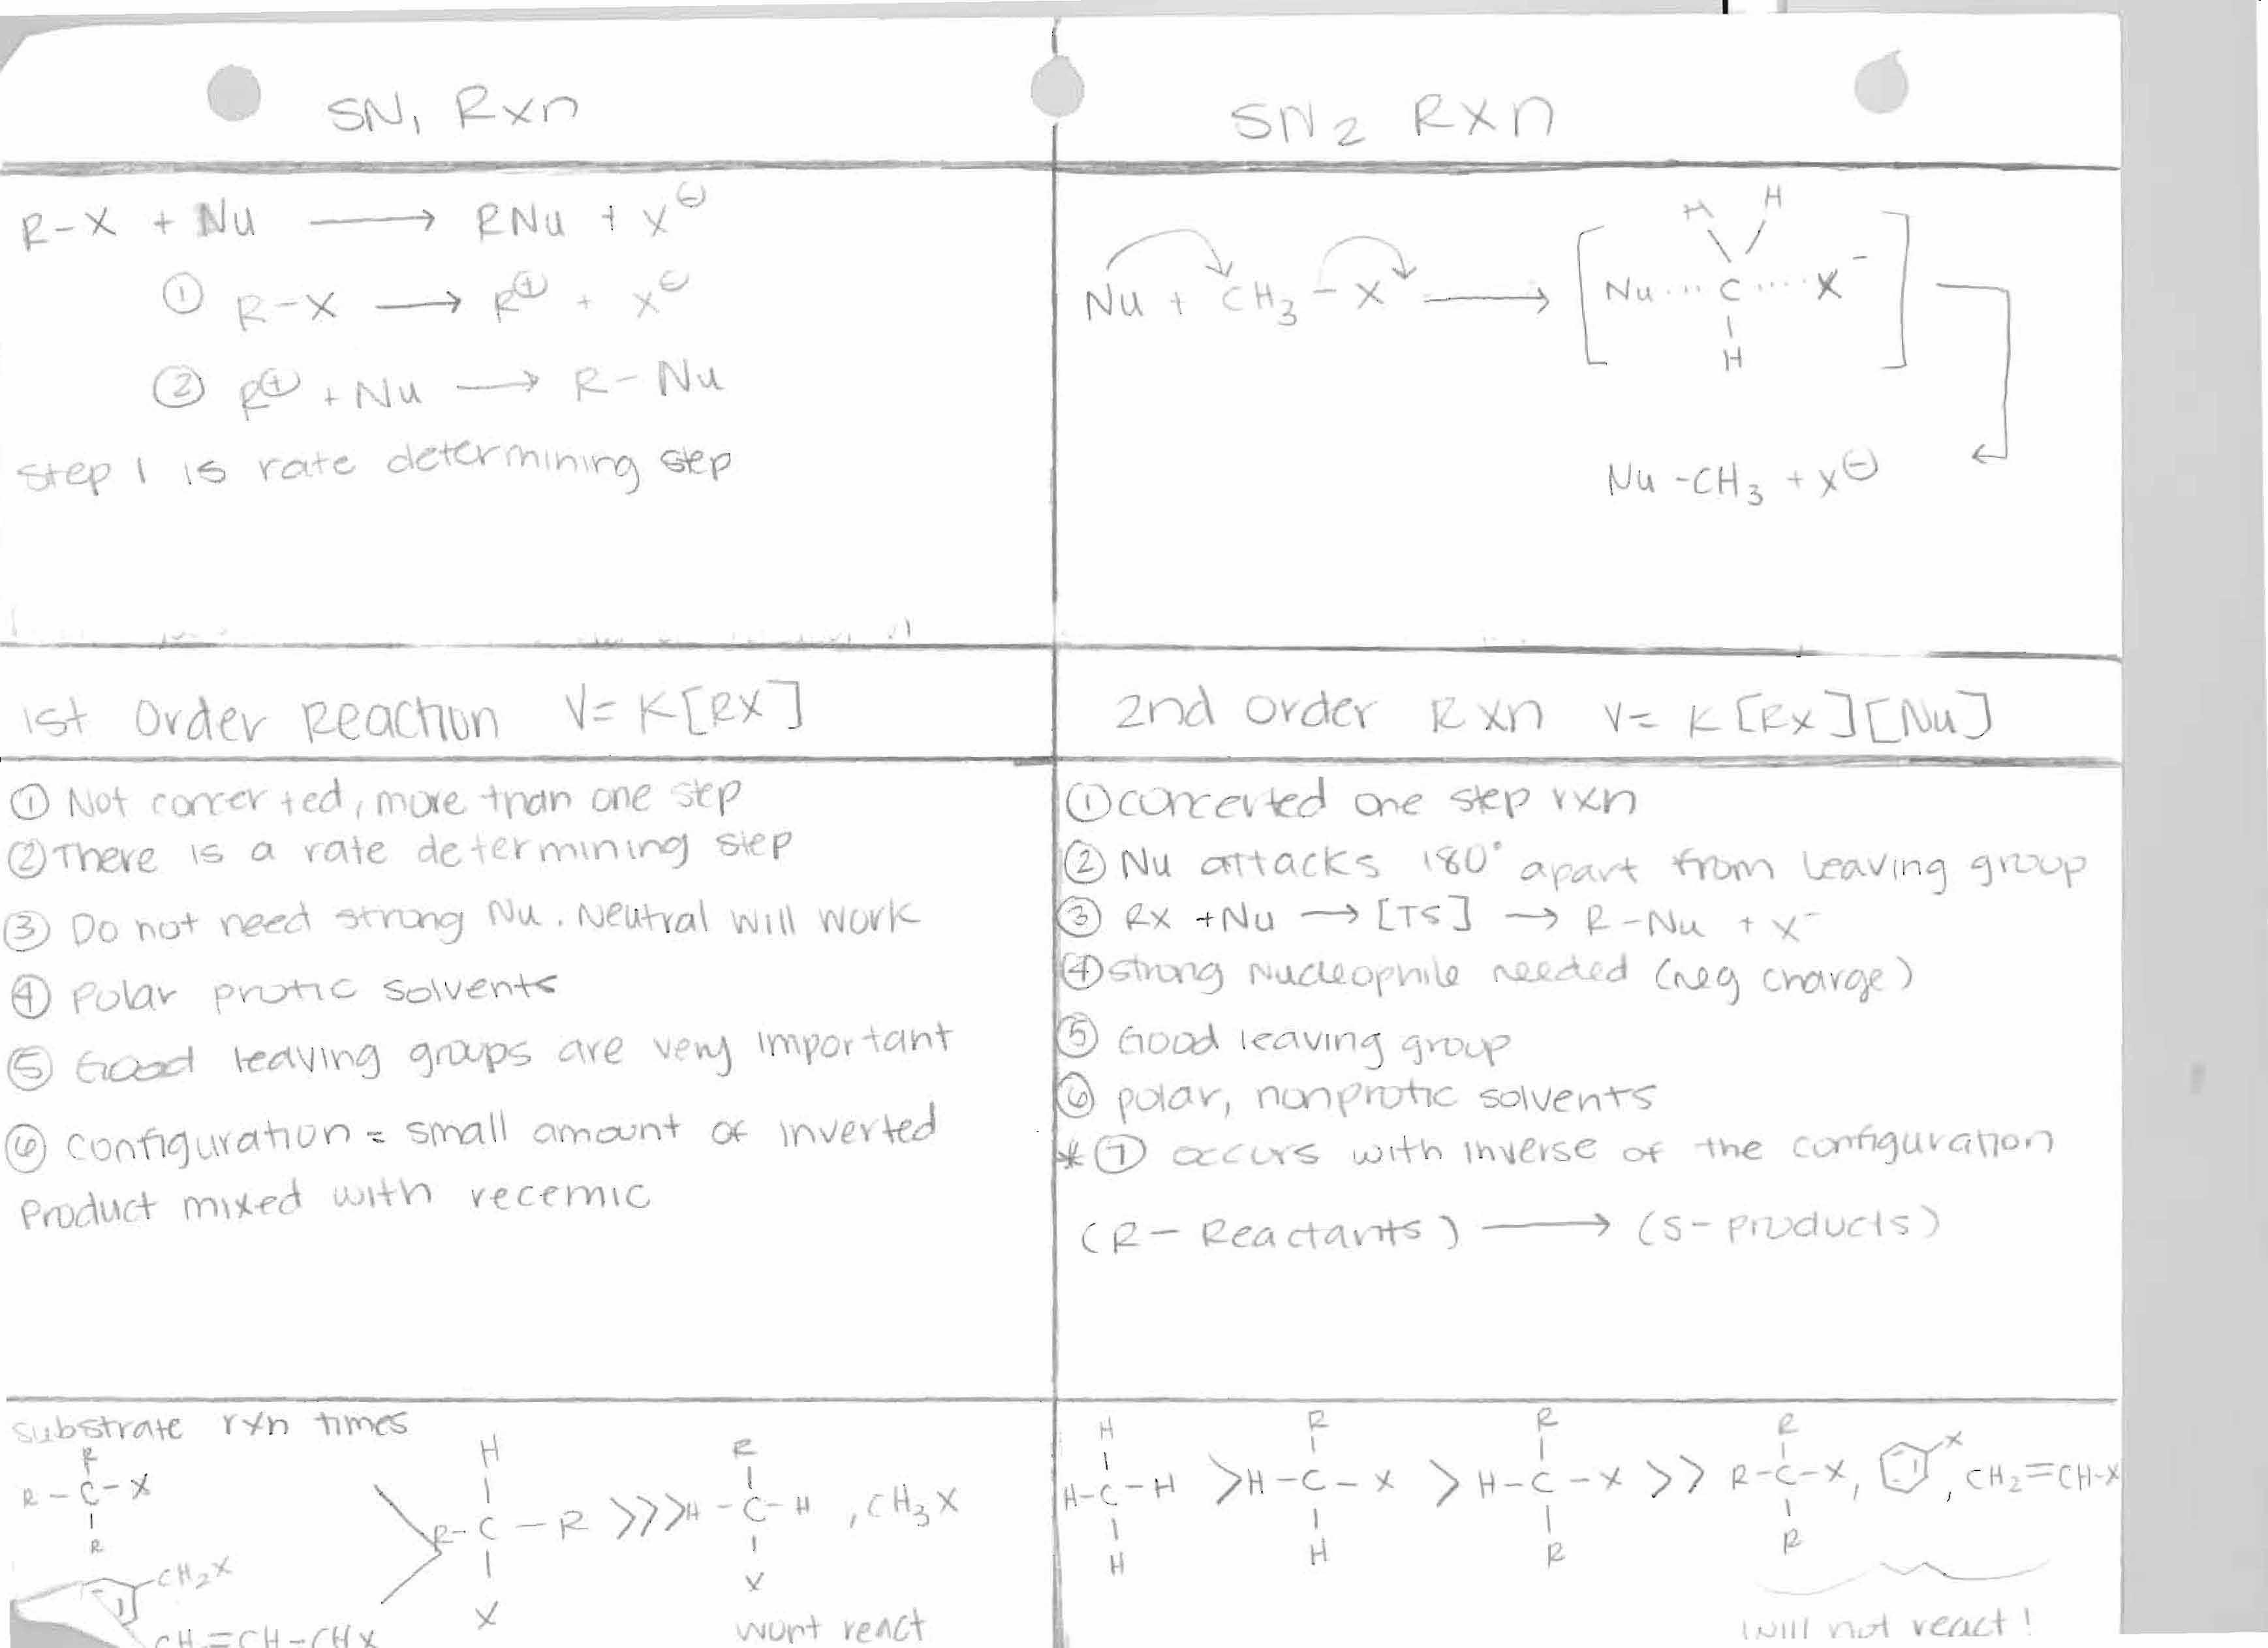 SN1 Rxn
R-X + Nu ⟶ RNu + X⊖
① R-X ⟶ R⊕ + X⊖
② R⊕ + Nu ⟶ R-Nu
Step 1 is rate determining step
1st Order Reaction V= K[RX]
① Not concerted, more than one step
② There is a rate determining step
③ Do not need strong Nu. Neutral will work
④ Polar protic solvents
⑤ Good leaving groups are very important
⑥ configuration = small amount of inverted
Product mixed with recemic
substrate rxn times
R
R-C-X
R
CH2X
CH2=CH-CHX
H
R-C-R >>> H-C-H , CH3X
X
R
X
wont react
SN2 RXN
Nu + CH3-X ⟶ [Nu····C····X⁻]
H H
H
Nu-CH3 + X⊖
2nd order RXN V= K[RX][Nu]
① concerted one step rxn
② Nu attacks 180° apart from leaving group
③ RX + Nu → [TS] → R-Nu + X⁻
④ strong Nucleophile needed (neg charge)
⑤ Good leaving group
⑥ polar, nonprotic solvents
*⑦ occurs with inverse of the configuration
(R- Reactants) ⟶ (S- products)
H R R R
H-C-H > H-C-X > H-C-X >> R-C-X, X, CH2=CH-X
H H R R
will not react!